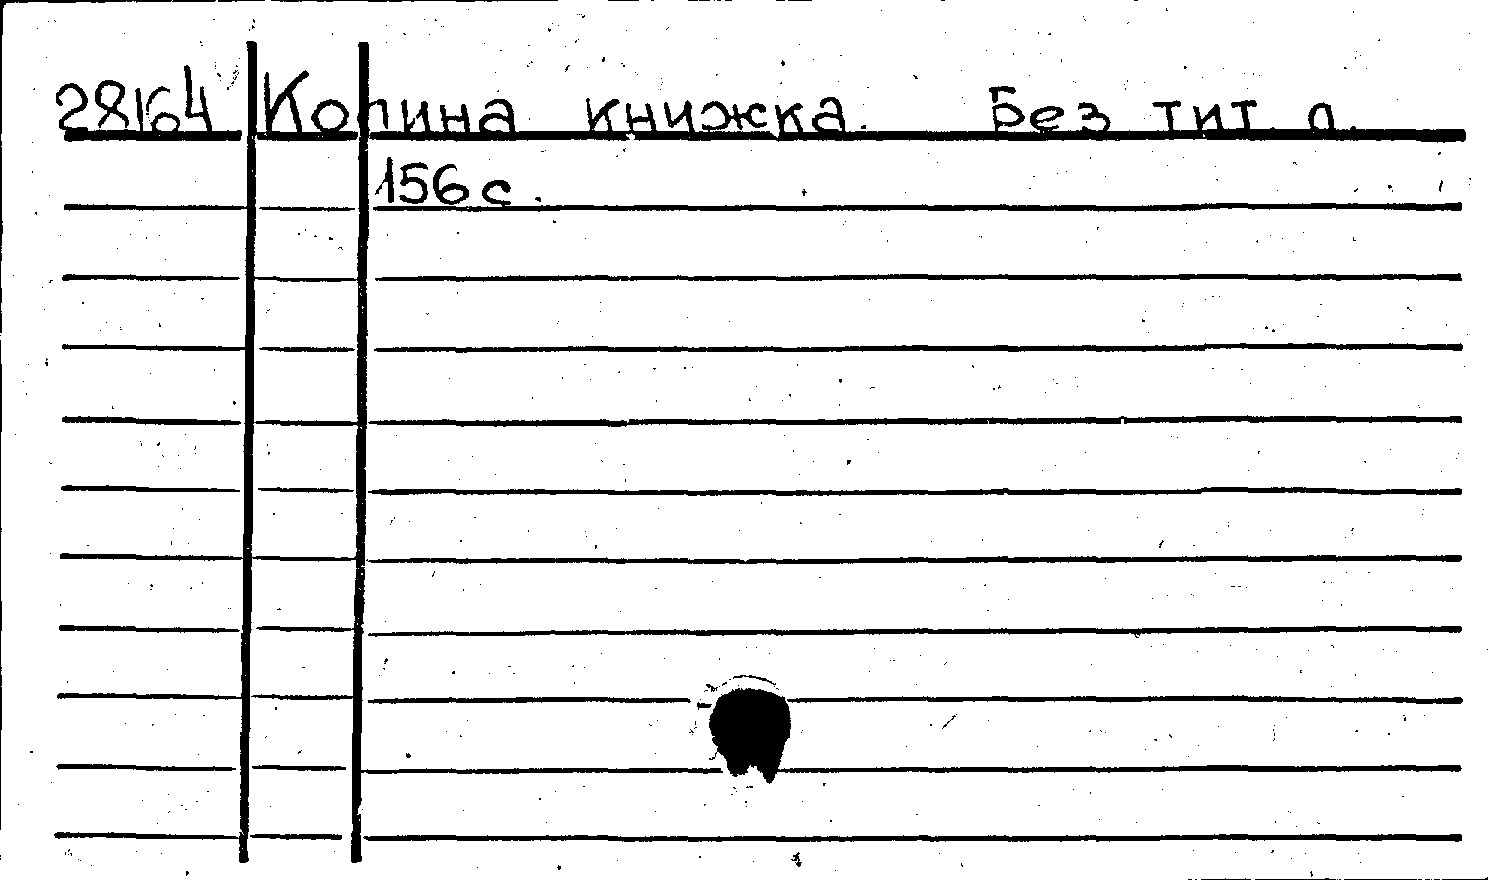 28164 Копина книжка. Без тит. л.
156 с.